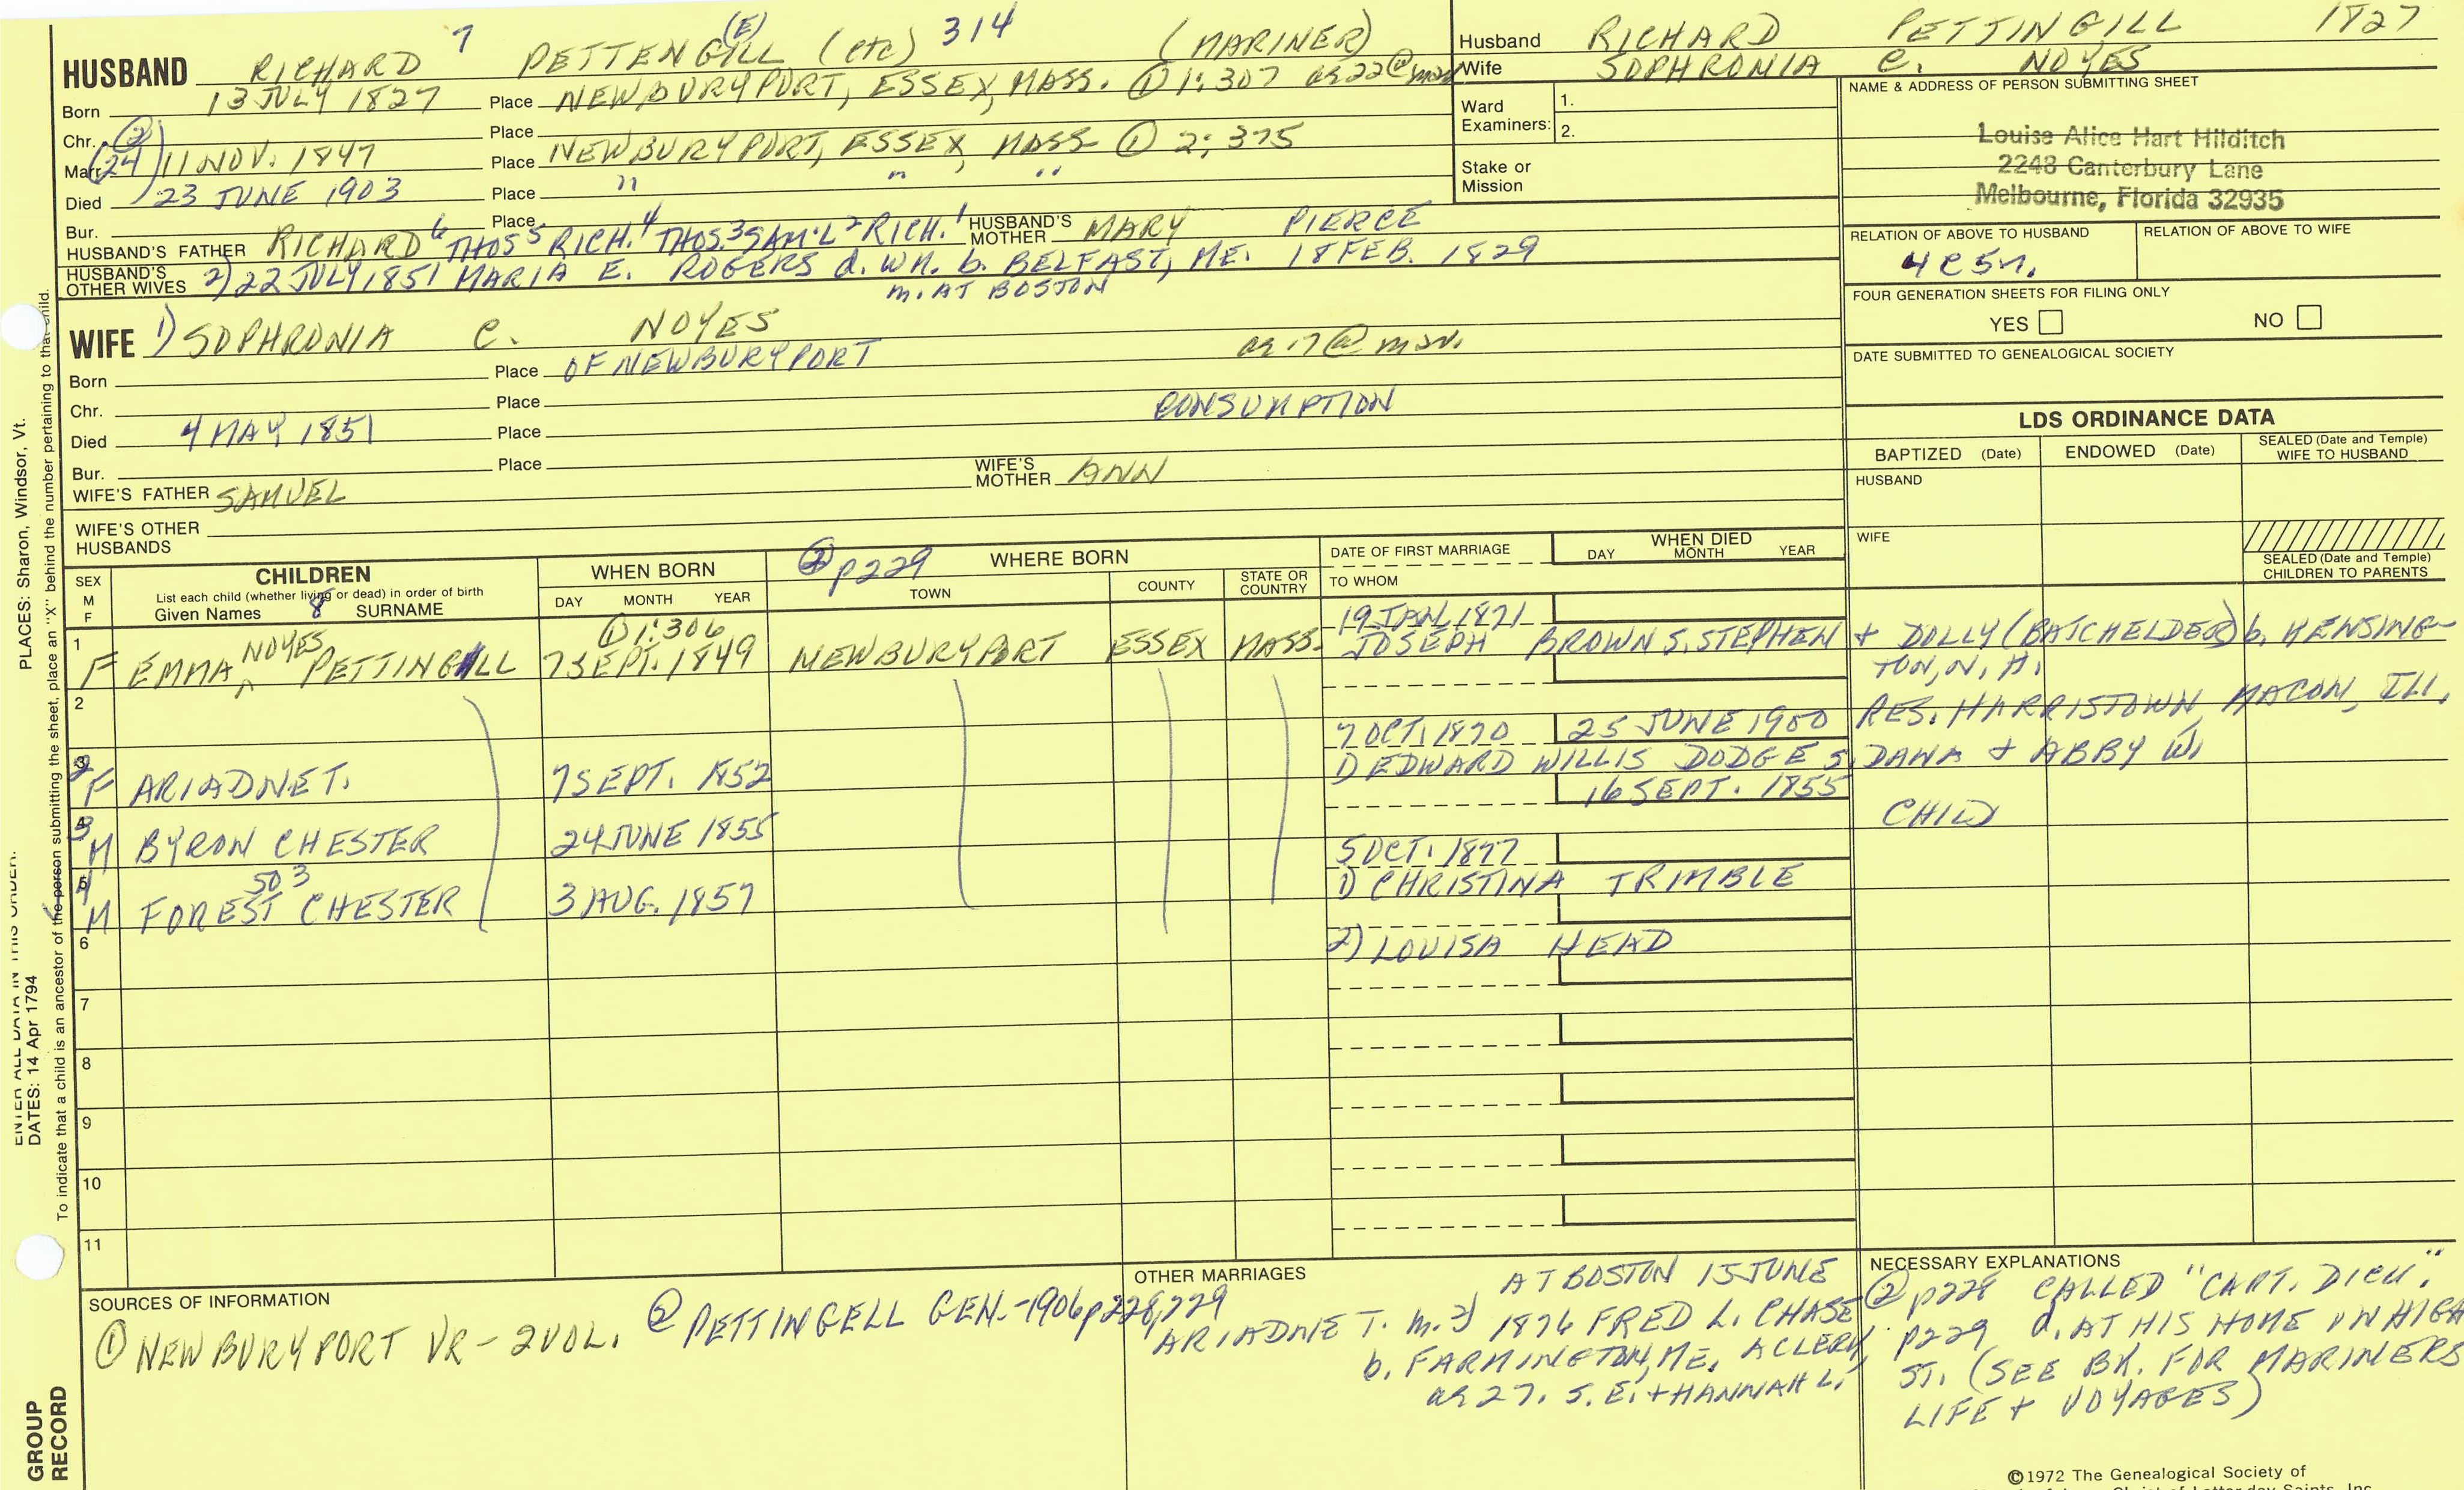 HUSBAND RICHARD 7 PETTENGILL (E) (etc) 314 (MARINER)
Born 13 JULY 1827 Place NEWBURYPORT, ESSEX, MASS. ① 1:307 ag 22 @ mar
Chr. Place
Marr. (24) ② 11 NOV. 1847 Place NEWBURYPORT, ESSEX, MASS ① 2:375
Died 23 JUNE 1903 Place " " "
Bur. Place
HUSBAND'S FATHER RICHARD 6 THOS 5 RICH. 4 THOS. 3 SAM'L 2 RICH. 1 HUSBAND'S MOTHER MARY PIERCE
HUSBAND'S OTHER WIVES 2) 22 JULY 1851 MARIA E. ROGERS d. WM. b. BELFAST, ME. 18 FEB. 1829
m. AT BOSTON
WIFE 1) SOPHRONIA C. NOYES
ag 17 @ mar.
Born Place OF NEWBURYPORT
Chr. Place CONSUMPTION
Died 4 MAY 1851 Place
Bur. Place
WIFE'S FATHER SAMUEL WIFE'S MOTHER ANN
WIFE'S OTHER HUSBANDS
Husband RICHARD PETTINGILL 1827
Wife SOPHRONIA C. NOYES
Ward Examiners: 1.
2.
Stake or Mission
NAME & ADDRESS OF PERSON SUBMITTING SHEET
Louise Alice Hart Hilditch
2248 Canterbury Lane
Melbourne, Florida 32935
RELATION OF ABOVE TO HUSBAND RELATION OF ABOVE TO WIFE
4 C 5 r.
FOUR GENERATION SHEETS FOR FILING ONLY
YES NO
DATE SUBMITTED TO GENEALOGICAL SOCIETY
LDS ORDINANCE DATA
BAPTIZED (Date) ENDOWED (Date) SEALED (Date and Temple) WIFE TO HUSBAND
HUSBAND
WIFE
SEALED (Date and Temple) CHILDREN TO PARENTS
SEX M F
CHILDREN
List each child (whether living or dead) in order of birth
Given Names 8 SURNAME
WHEN BORN
DAY MONTH YEAR
② p229 WHERE BORN
TOWN COUNTY STATE OR COUNTRY
DATE OF FIRST MARRIAGE
TO WHOM
WHEN DIED
DAY MONTH YEAR
① 1:306 19 JAN. 1871
1 F EMMA NOYES PETTINGILL 7 SEPT. 1849 NEWBURYPORT ESSEX MASS. JOSEPH BROWN S. STEPHEN + DOLLY (BATCHELDER) b. KENSING-
TON, N. H.
2
7 OCT. 1870 25 JUNE 1900 RES. HARRISTOWN, MACON, ILL.
3 2 F ARIADNE T. 7 SEPT. 1852 1) EDWARD WILLIS DODGE S. DANA + ABBY W.
16 SEPT. 1855 CHILD
4 3 M BYRON CHESTER 24 JUNE 1855
5 OCT. 1877
503
5 4 M FOREST CHESTER 3 AUG. 1857 1) CHRISTINA TRIMBLE
6 2) LOUISA HEAD
7
8
9
10
11
SOURCES OF INFORMATION
① NEWBURYPORT VR - 2 VOL. ② PETTINGELL GEN. - 1906 p228, 229
OTHER MARRIAGES
AT BOSTON 15 JUNE
ARIADNE T. m. 2) 1876 FRED L. CHASE
b. FARMINGTON, ME. A CLERK
ag 27. S. E. + HANNAH L.
NECESSARY EXPLANATIONS
② p228 CALLED "CAPT. DICK."
p229 d. AT HIS HOME ON HIGH
ST. (SEE BK. FOR MARINERS
LIFE + VOYAGES)
©1972 The Genealogical Society of
PLACES: Sharon, Windsor, Vt.
ENTER ALL DATA IN THIS ORDER:
DATES: 14 Apr 1794
To indicate that a child is an ancestor of the person submitting the sheet, place an "X" behind the number pertaining to that child.
GROUP
RECORD